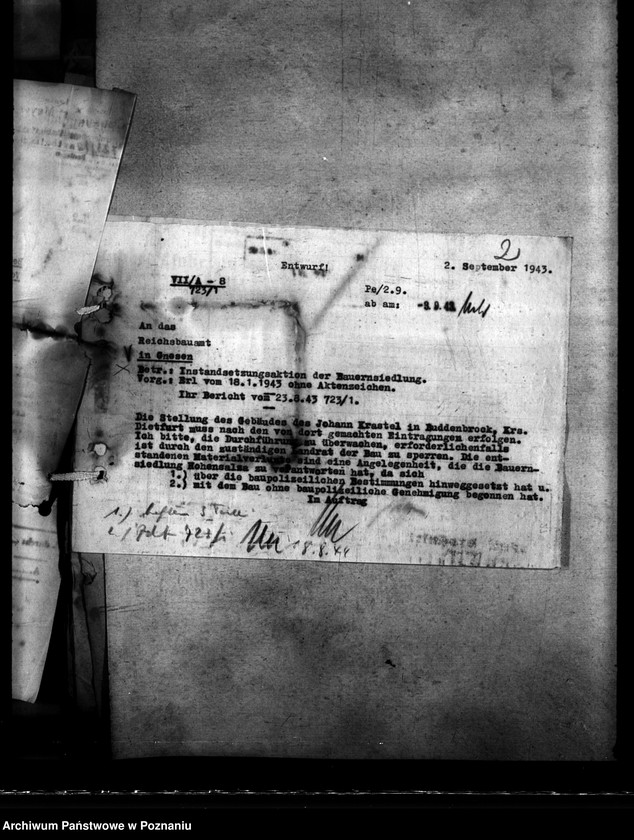 2
Entwurf!
2. September 1943.
VII/A - 8
723/1
Pe/2.9.
ab am:
An das
Reichsbauamt
in Gnesen
Betr.: Instandsetzungsaktion der Bauernsiedlung.
Vorg.: Erl vom 18.1.1943 ohne Aktenzeichen.
Ihr Bericht vom 23.8.43 723/1.
Die Stellung des Gebäudes des Johann Krastel in Buddenbrook, Krs.
Dietfurt muss nach den von dort gemachten Eintragungen erfolgen.
Ich bitte, die Durchführung zu überwachen, erforderlichenfalls
ist durch den zuständigen Landrat der Bau zu sperren. Die ent-
standenen sind eine Angelegenheit, die die Bauern-
siedlung Hohensalza zu verantworten hat, da sich
1.) über die baupolizeilichen Bestimmungen hinweggesetzt hat u.
2.) mit dem Bau ohne baupolizeiliche Genehmigung begonnen hat.
Im Auftrag
1.)
2.) 723/1 18.8.44
Archiwum Państwowe w Poznaniu